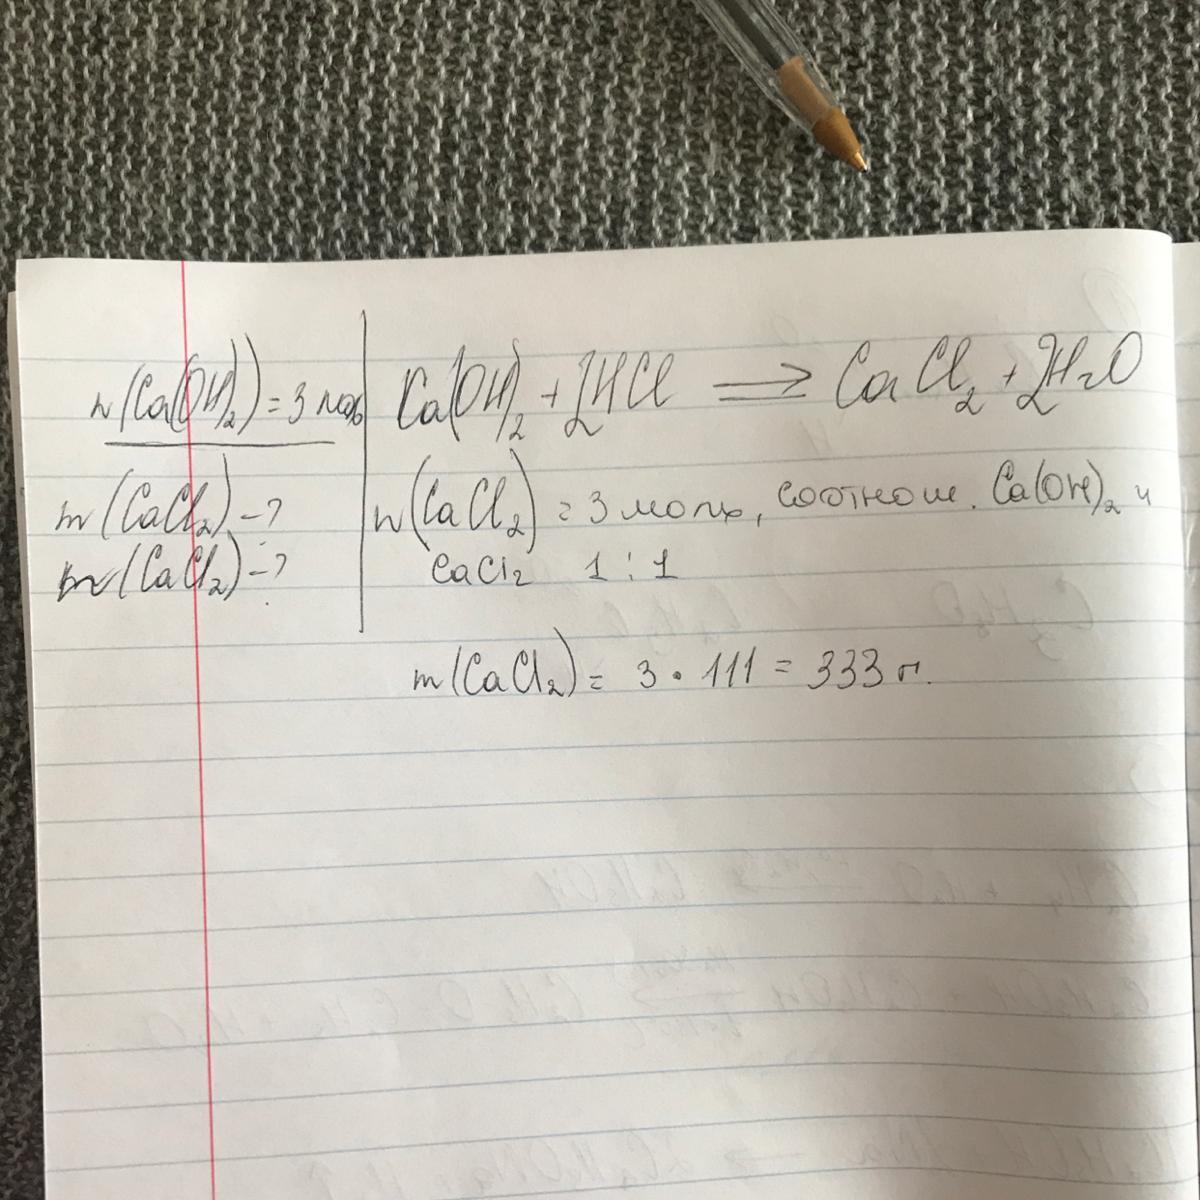 n(Ca(OH)₂) = 3 моль
m(CaCl₂) - ?
n(CaCl₂) - ?
Ca(OH)₂ + 2HCl ⇒ CaCl₂ + 2H₂O
n(CaCl₂) = 3 моль, соотнош. Ca(OH)₂ и
CaCl₂ 1 : 1
m(CaCl₂) = 3 · 111 = 333 г.